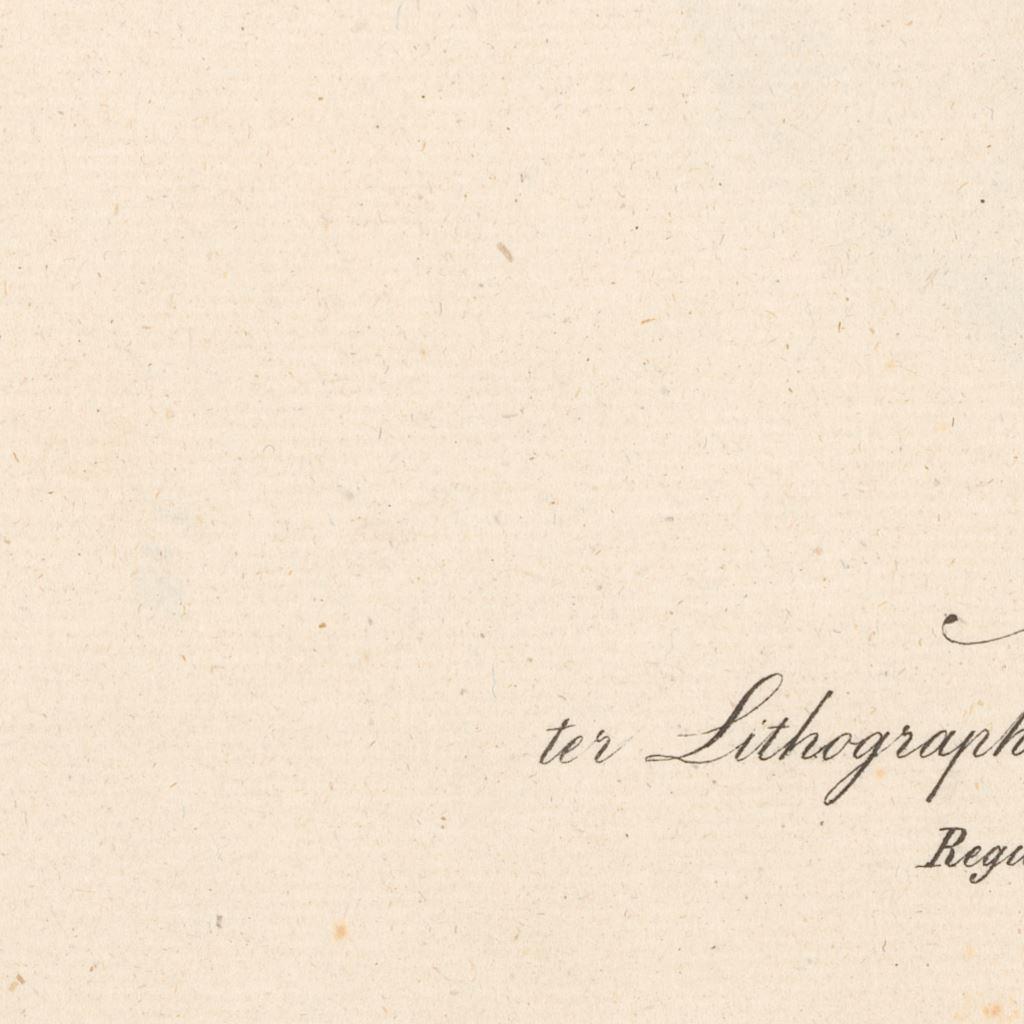 ter Lithograph
Regu